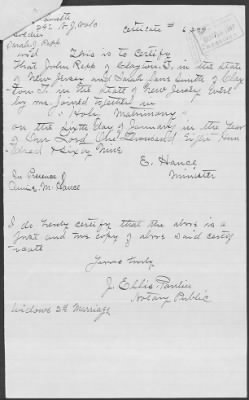 Certificate #
with This is to Certify
that John Repp of Clayton, in the State
of New Jersey and Sarah Jane Smith of Clay
ton, in the State of New Jersey were
by me joined together in
Holy Matrimony
on the Sixth day of January in the Year
of Our Lord One thousand Eight Hun
dred & Sixty Nine
E. Hance
Minister
In Presence of
Annie M. Hance
I do hereby certify that the above is a
just and true copy of above said certif
icate
Yours truly
J. Ellis
Notary Public
Widows 2d Marriage